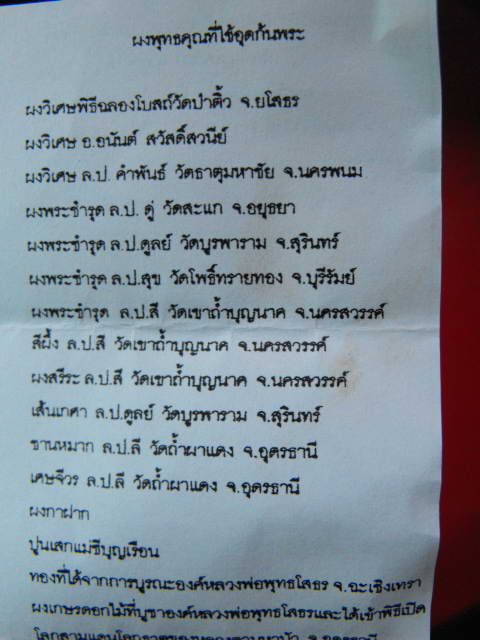 ผงพุทธคุณที่ใช้อุดก้นพระ
ผงวิเศษพิธีฉลองโบสถ์วัดป่าติ้ว จ.ยโสธร
ผงวิเศษ อ.อนันต์ สวัสดิ์สวนีย์
ผงวิเศษ ล.ป. คำพันธ์ วัดธาตุมหาชัย จ.นครพนม
ผงพระชำรุด ล.ป. ดู่ วัดสะแก จ.อยุธยา
ผงพระชำรุด ล.ป.ดูลย์ วัดบูรพาราม จ.สุรินทร์
ผงพระชำรุด ล.ป.สุข วัดโพธิ์ทรายทอง จ.บุรีรัมย์
ผงพระชำรุด ล.ป.สี วัดเขาถ้ำบุญนาค จ.นครสวรรค์
สีผึ้ง ล.ป.สี วัดเขาถ้ำบุญนาค จ.นครสวรรค์
ผงสรีระ ล.ป.สี วัดเขาถ้ำบุญนาค จ.นครสวรรค์
เส้นเกศา ล.ป.ดูลย์ วัดบูรพาราม จ.สุรินทร์
ชานหมาก ล.ป.ลี วัดถ้ำผาแดง จ.อุดรธานี
เศษจีวร ล.ป.ลี วัดถ้ำผาแดง จ.อุดรธานี
ผงกาฝาก
ปูนเสกแม่ชีบุญเรือน
ทองที่ได้จากการบูรณะองค์หลวงพ่อพุทธโสธร จ.ฉะเชิงเทรา
ผงเกษรดอกไม้ที่บูชาองค์หลวงพ่อพุทธโสธรและได้เข้าพิธีเปิด